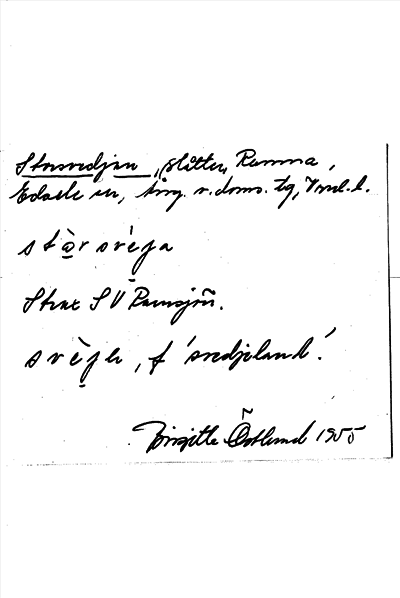 Storsvedjan, slåtter, Ramna,
Edsele sn, Ång. n. doms. tg, Vnrl. l.
stòrsvèja
Strax S V Ramsjön.
svèjh, f 'svedjeland'.
Birgitta Östlund 1955